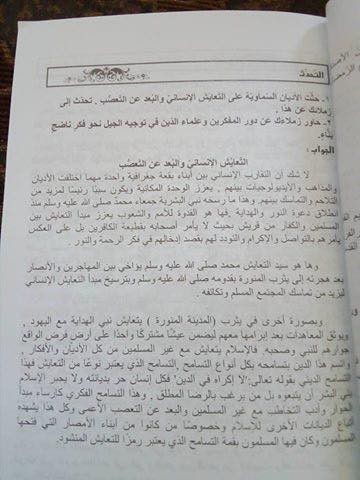 التحدث
١- حثَّت الأديان السَّماويَّة على التعايش الإنسانيّ والبُعد عن التعصّب . تحدَّث إلى
زملائك عن هذا .
٢- حاور زملاءك عن دور المفكرين وعلماء الدين في توجيه الجيل نحو فكر ناضج
بنّاء.
الجواب :
التعايش الإنسانيّ والبُعد عن التعصّب
لا شك أن التقارب الإنساني بين أبناء بقعة جغرافية واحدة مهما اختلفت الأديان
والمذاهب والإيديولوجيات بينهم , يعزز الوحدة المكانية ويكون سببًا رئيسًا لمزيد من
التلاحم والتماسك بينهم. وهذا ما رسخه نبي البشرية جمعاء محمد صلى الله عليه وسلم منذ
انطلاق دعوة النور والهداية .فها هو القدوة للأمم والشعوب يعزز مبدأ التعايش بين
المسلمين والكفار من قريش بحيث لا يأمر أصحابه بقطيعة الكافرين بل على العكس
يأمرهم بالتواصل والإكرام والتودد لهم بقصد إدخالهم في فكر الرحمة والنور .
وها هو سيد التعايش محمد صلى الله عليه وسلم يؤاخي بين المهاجرين والأنصار
بعد هجرته إلى يثرب المنورة بقدومه صلى الله عليه وسلم وبترسيخ مبدأ التعايش الإنساني
ليزيد من تماسك المجتمع المسلم وتكاتفه .
وبصورة أخرى في يثرب (المدينة المنورة ) يتعايش نبي الهداية مع اليهود ,
ويوثق المعاهدات بعد إبرامها معهم ليضمن عيشًا مشتركًا واحدًا على أرض فرض الواقع
جوارهم للنبي وصحبه فالإسلام يتعايش مع غير المسلمين من كل الأديان والأفكار ,
واسم هذا الدين بتسامحه بكل أنواع التسامح ,التسامح الذي يعتبر نوعًا من التعايش فهذا
التسامح الديني بقوله تعالى:"لا إكراه في الدين" فكل إنسان حر بديانته ولا يجبر الإسلام
بني البشر أن يتبعوه بل من يرغب بالرضا المطلق , وهذا التسامح الفكري كإرساء مبدأ
الحوار وأدب التخاطب مع غير المسلمين والبعد عن التعصب الأعمى وكل هذا يشهده
أتباع الديانات الأخرى للإسلام وخصوصًا من كانوا من أبناء الأمصار التي فتحها
المسلمون وكان فيها المسلمون بقمة التسامح الذي يعتبر رمزًا للتعايش المنشود.